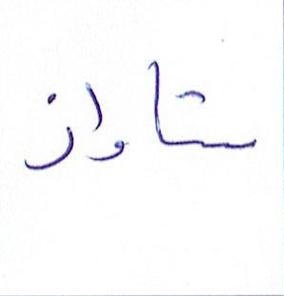 ستاواز